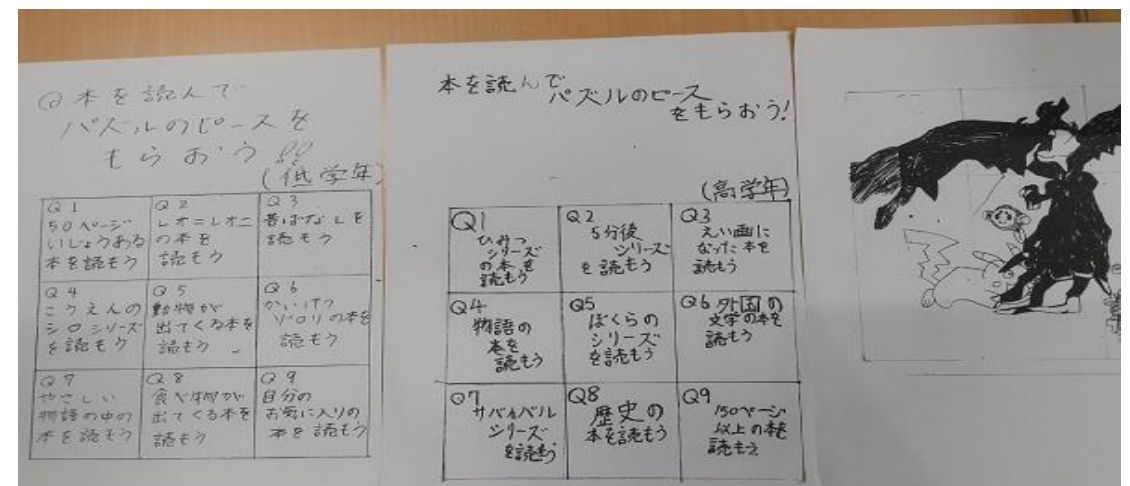 本を読んで
パズルのピースを
もらおう!!
(低学年)
Q1
50ページ
いじょうある
本を読もう
Q2
レオ=レオニ
の本を
読もう
Q3
昔ばなしを
読もう
Q4
こうえんの
シロシリーズ
を読もう
Q5
動物が
出てくる本を
読もう
Q6
かいけつ
ゾロリの本を
読もう
Q7
やさしい
物語の中の
本を読もう
Q8
食べ物が
出てくる本を
読もう
Q9
自分の
お気に入りの
本を読もう
本を読んで
パズルのピース
をもらおう!
(高学年)
Q1
ひみつ
シリーズ
の本を
読もう
Q2
5分後
シリーズ
を読もう
Q3
えい画に
なった本を
読もう
Q4
物語の
本を
読もう
Q5
ぼくらの
シリーズ
を読もう
Q6 外国の
文学の本を
読もう
Q7
サバイバル
シリーズ
を読もう
Q8
歴史の
本を読もう
Q9
150ページ
以上の本を
読もう